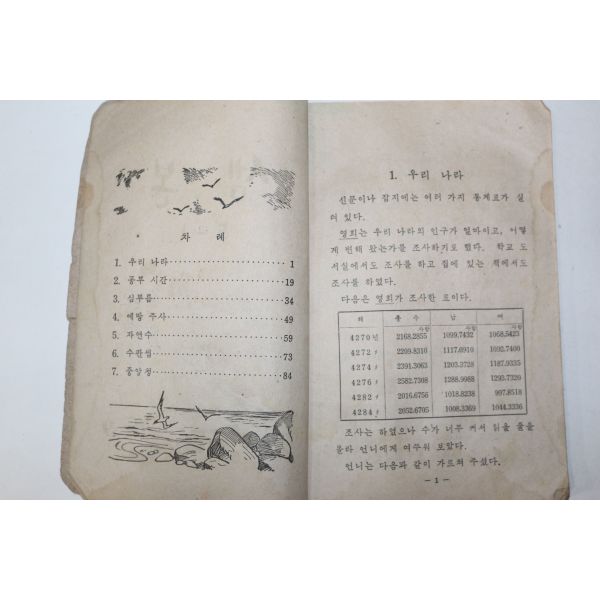 차 례
1. 우리 나라 1
2. 공부 시간 19
3. 심부름 34
4. 예방 주사 49
5. 자연수 59
6. 수판셈 73
7. 중앙청 84
1. 우리 나라
신문이나 잡지에는 여러 가지 통계표가 실
려 있다.
영희는 우리 나라의 인구가 얼마이고, 어떻
게 변해 왔는가를 조사하기로 했다. 학교 도
서실에서도 조사를 하고 집에 있는 책에서도
조사를 하였다.
다음은 영희가 조사한 표이다.
해 총 수 남 여
4270년 2168.2855 사람 1099.7432 사람 1068.5423 사람
4272 〃 2209.8310 1117.6910 1092.7400
4274 〃 2391.3063 1203.3728 1187.9335
4276 〃 2582.7308 1288.9988 1293.7320
4282 〃 2016.6756 1018.8238 997.8518
4284 〃 2052.6705 1008.3369 1044.3336
조사는 하였으나 수가 너무 커서 읽을 줄을
몰라 언니에게 여쭈워 보았다.
언니는 다음과 같이 가르쳐 주셨다.
— 1 —